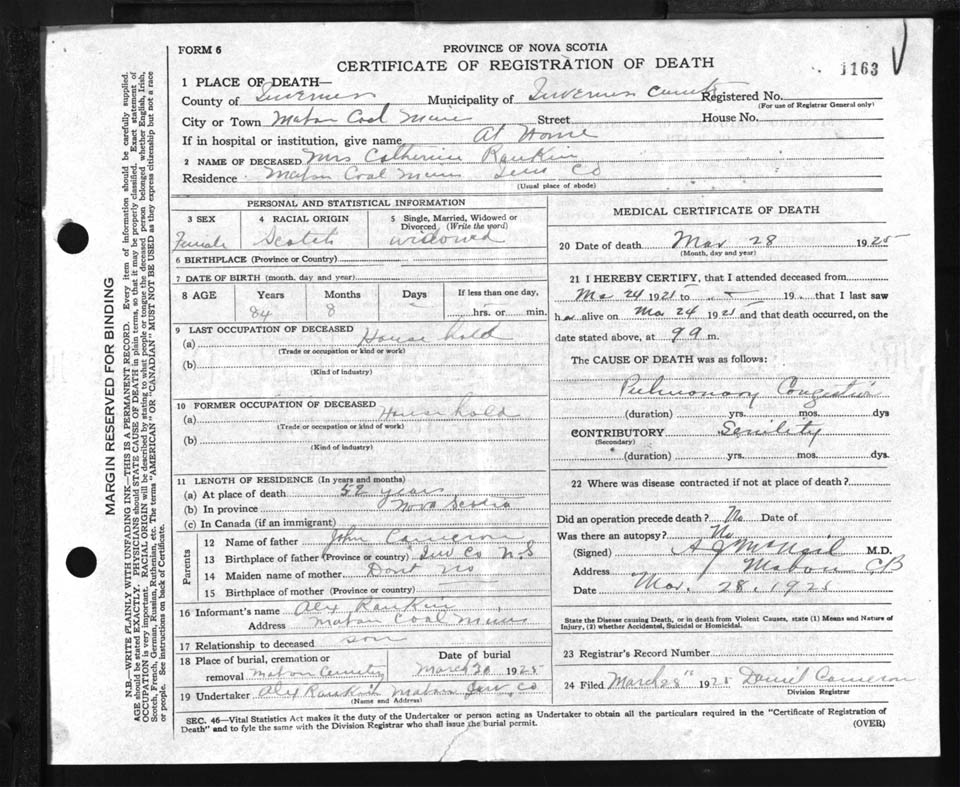 FORM 6
PROVINCE OF NOVA SCOTIA
CERTIFICATE OF REGISTRATION OF DEATH
1163
1 PLACE OF DEATH—
County of Inverness Municipality of Inverness County Registered No.
(For use of Registrar General only)
City or Town Mabou Coal Mines Street House No.
If in hospital or institution, give name At Home
2 NAME OF DECEASED Mrs Catherine Rankin
Residence Mabou Coal Mines Inv Co
(Usual place of abode)
PERSONAL AND STATISTICAL INFORMATION
3 SEX 4 RACIAL ORIGIN 5 Single, Married, Widowed or Divorced (Write the word)
Female Scotch widowed
6 BIRTHPLACE (Province or Country)
7 DATE OF BIRTH (month, day, and year)
8 AGE Years Months Days If less than one day,
84 8 hrs. or min.
9 LAST OCCUPATION OF DECEASED
(a) House hold
(Trade or occupation or kind or work)
(b)
(Kind of industry)
10 FORMER OCCUPATION OF DECEASED
(a) House hold
(Trade or occupation or kind of work)
(b)
(Kind of industry)
11 LENGTH OF RESIDENCE (In years and months)
(a) At place of death 52 years
(b) In province Nova Scotia
(c) In Canada (if an immigrant)
Parents
12 Name of father John Cameron
13 Birthplace of father (Province or country) Inv Co N.S
14 Maiden name of mother Dont no
15 Birthplace of mother (Province or country)
16 Informant's name Alex Rankin
Address Mabou Coal Mines
17 Relationship to deceased son
18 Place of burial, cremation or removal Mabou Cemetry
Date of burial March 30 1925
19 Undertaker Alex Rankin Mabou Inv, Co
(Name and Address)
MEDICAL CERTIFICATE OF DEATH
20 Date of death Mar 28 1925
(Month, day and year)
21 I HEREBY CERTIFY, that I attended deceased from
24 1925 to 19 that I last saw
her alive on Mar 24 1925 and that death occurred, on the
date stated above, at 9 m.
The CAUSE OF DEATH was as follows:
Pulmonary Congestion
(duration) yrs. mos. dys
CONTRIBUTORY Senility
(Secondary)
(duration) yrs. mos. dys.
22 Where was disease contracted if not at place of death?
Did an operation precede death? No Date of
Was there an autopsy? No
(Signed) A J McNeil M.D.
Address Mabou CB
Date Mar. 28, 1925
State the Disease causing Death, or in death from Violent Causes, state (1) Means and Nature of
Injury, (2) whether Accidental, Suicidal or Homicidal.
23 Registrar's Record Number
24 Filed March 28" 1925 Daniel Cameron
Division Registrar
SEC. 46—Vital Statistics Act makes it the duty of the Undertaker or person acting as Undertaker to obtain all the particulars required in the "Certificate of Registration of
Death" and to fyle the same with the Division Registrar who shall issue the burial permit.
(OVER)
MARGIN RESERVED FOR BINDING
N.B.—WRITE PLAINLY WITH UNFADING INK—THIS IS A PERMANENT RECORD. Every item of information should be carefully supplied.
AGE should be stated EXACTLY. PHYSICIANS should STATE CAUSE OF DEATH in plain terms, so that it may be properly classified. Exact statement of
OCCUPATION is very important. RACIAL ORIGIN will be described by stating to what people or tongue the deceased person belonged whether English, Irish,
Scotch, French, German, Russian, Ruthenian, etc. The terms "AMERICAN" OR "CANADIAN" MUST NOT BE USED as they express citizenship but not a race
or people. See instructions on back of Certificate.